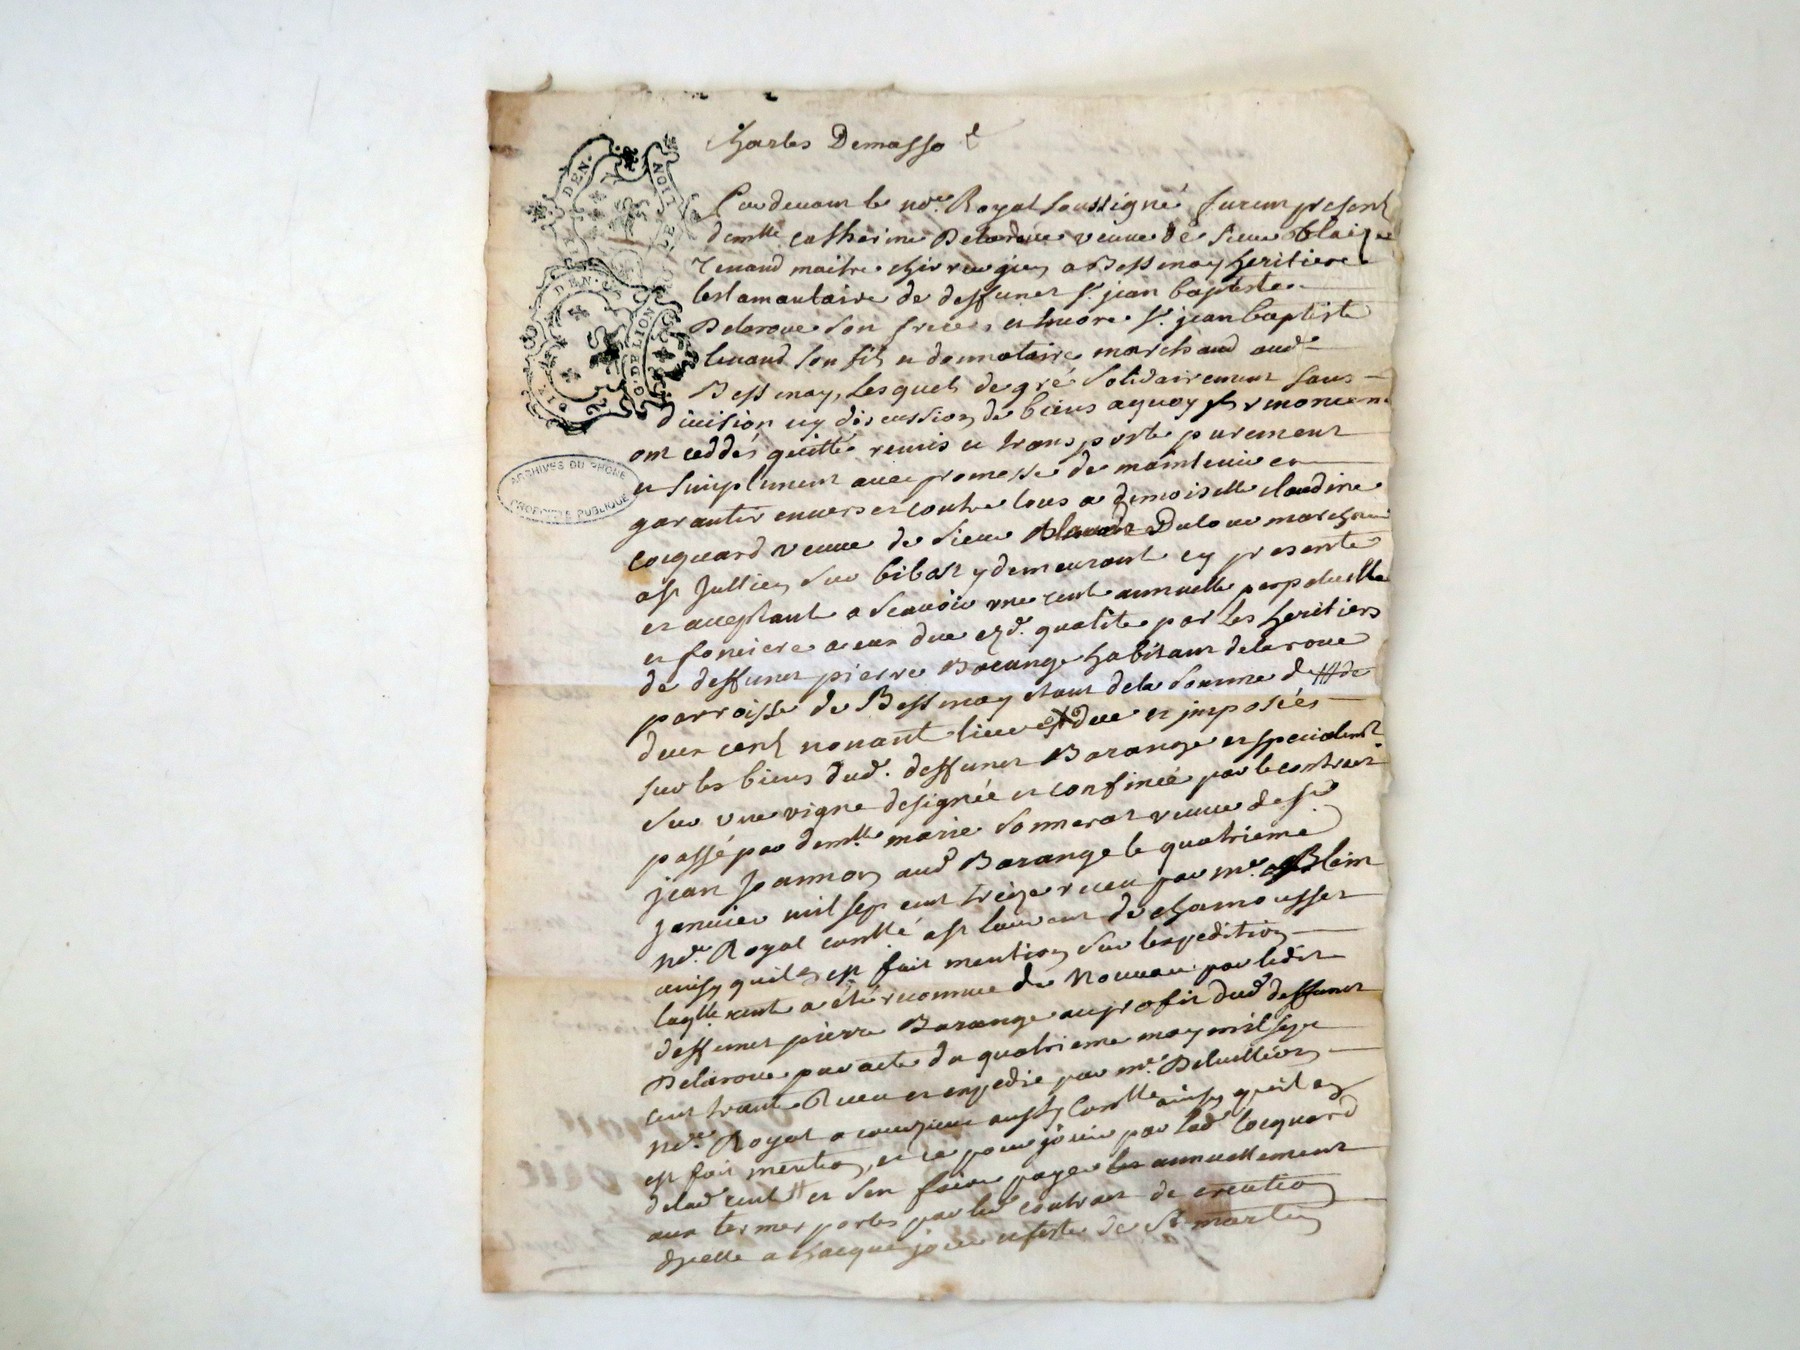 Charles Demasso
Pardevant le no.re Royal soussigné furent presents
dem.lle catherine Delaroue veuve de sieur blaize
maitre chirurgien a Bessenay heritiere
testamantaire de deffunct s.r jean baptiste
Delaroue son frere, et encore s.r jean baptiste
son fils et donnataire marchand aud.
Bessenay, Lesquels de gré solidairement sans
division ny discussion de biens aquoy ils renoncent
ont ceddés quitté remis et transporté purement
et simplement avec promesse de maintenir et
garantir envers et contre tous a demoiselle claudine
Cocquard veuve de sieur Dulac marchand
a st Jullien sur bibost y demeurant cy presente
et acceptante a scavoir une rente annuelle perpetuelle
et fonciere a eux due esd. qualité par Les heritiers
de deffunct pierre Barange habitant delaroue
parroisse de Bessenay etant de la somme de
deux cent nonante livre due et imposées
sur les biens dud. deffunct Barange et specialem.t
sur une vigne designée et confinée par le contract
passé par dem.lle marie Sonnerat veuve de s.r
jean Joannon aud Barange le quatrieme
janvier mil sept cent treize receu par m.e Blein
no.re Royal a st laurent de chamousset
ainsy quil en est fait mention sur lexpedition
laq.lle rente a été reconnue de nouveau par ledit
deffunct pierre Barange au profit dud deffunct
Delaroue par acte du quatrieme may mil sept
cent trente receu et expedié par m.e
no.re Royal a courzieu aussy ainsy quil en
est fait mention, et ce pour jouir par lad Cocquard
delad rente et sen faire payer annuellement
aux termes portés par led contract de creation
dicelle a chacque jour et feste de St martin
DEN.
LION
GÑAL. DE LION
ARCHIVES DU RHONE
PROPRIETE PUBLIQUE